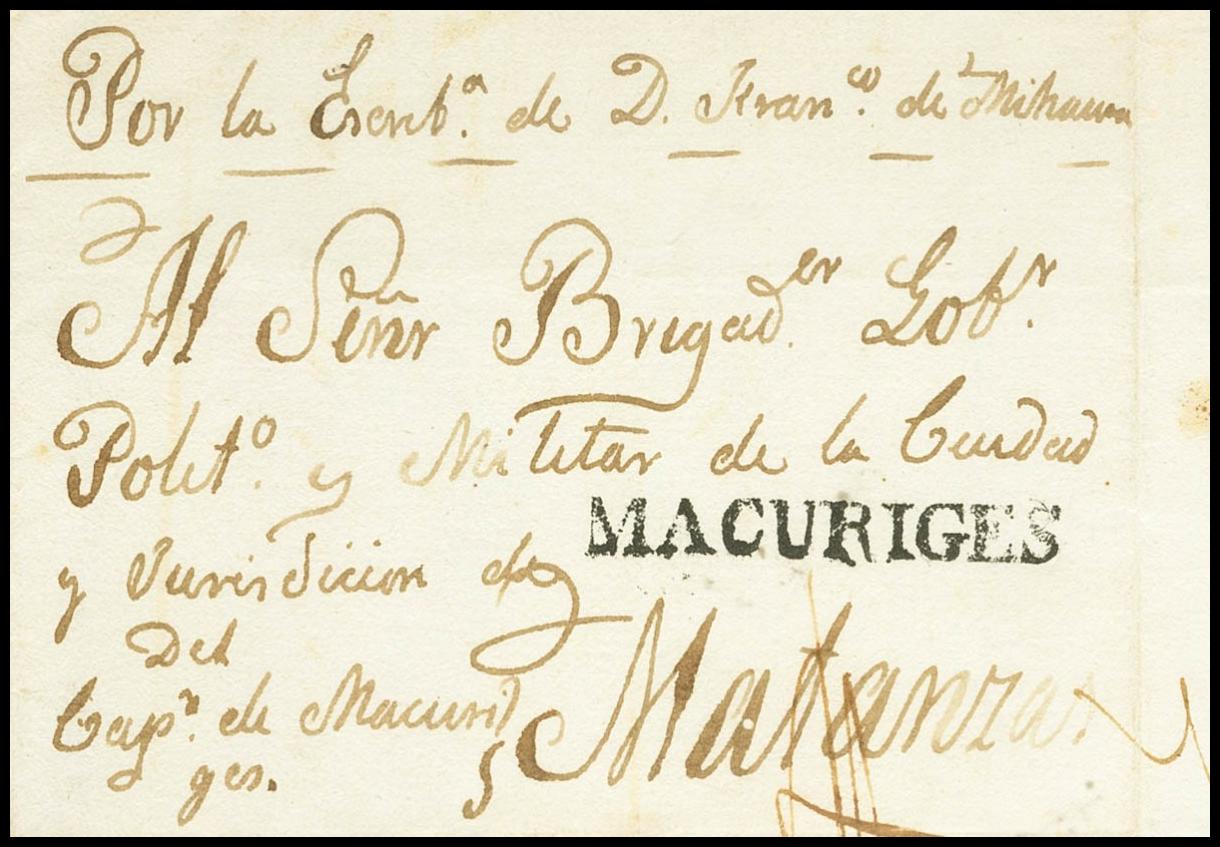 Por la Escrib.ª de D. Fran.co de
Al Señr Brigad.er Gob.r
Polit.º y Militar de la Ciudad
MACURIGES
y Jurisdicion de
Matanzas
Del
Cap.n de Macuri
ges.